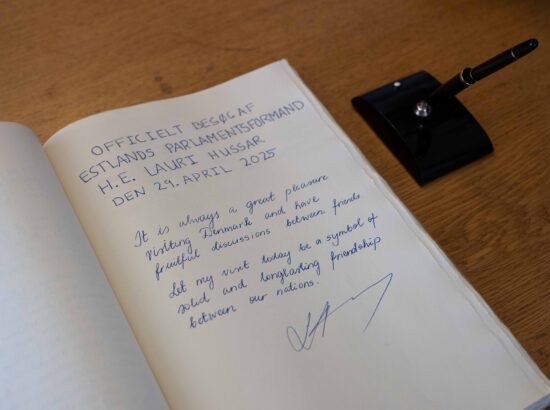 OFFICIELT BESØG AF
ESTLANDS PARLAMENTSFORMAND
H.E. LAURI HUSSAR
DEN 29. APRIL 2025
It is always a great pleasure
visiting Denmark and have
fruitful discussions between friends
Let my visit today be a symbol of
solid and longlasting friendship
between our nations.